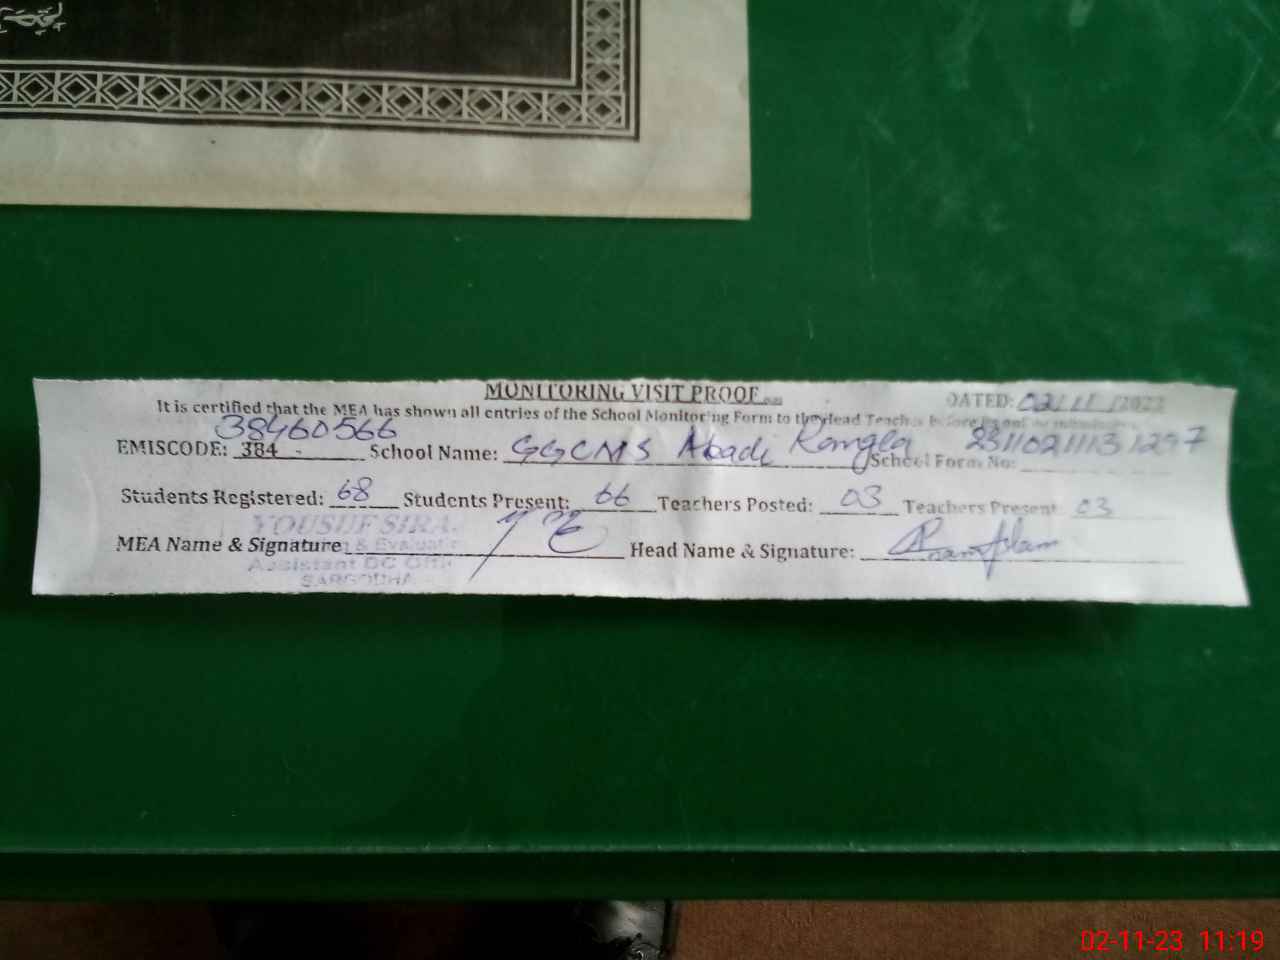 MONITORING VISIT PROOF
DATED: 02/11/2022
It is certified that the MEA has shown all entries of the School Monitoring Form to the Head Teacher before
38460566
EMISCODE: 384 - School Name: GGCMS Abadi Rangla School Form No: 2311021113 1297
Students Registered: 68 Students Present: 66 Teachers Posted: 03 Teachers Present: 03
YOUSUF SIRA
MEA Name & Signature: Head Name & Signature: Anam Aslam
& Evaluation
Assistant DC Office
SARGODHA
02-11-23 11:19